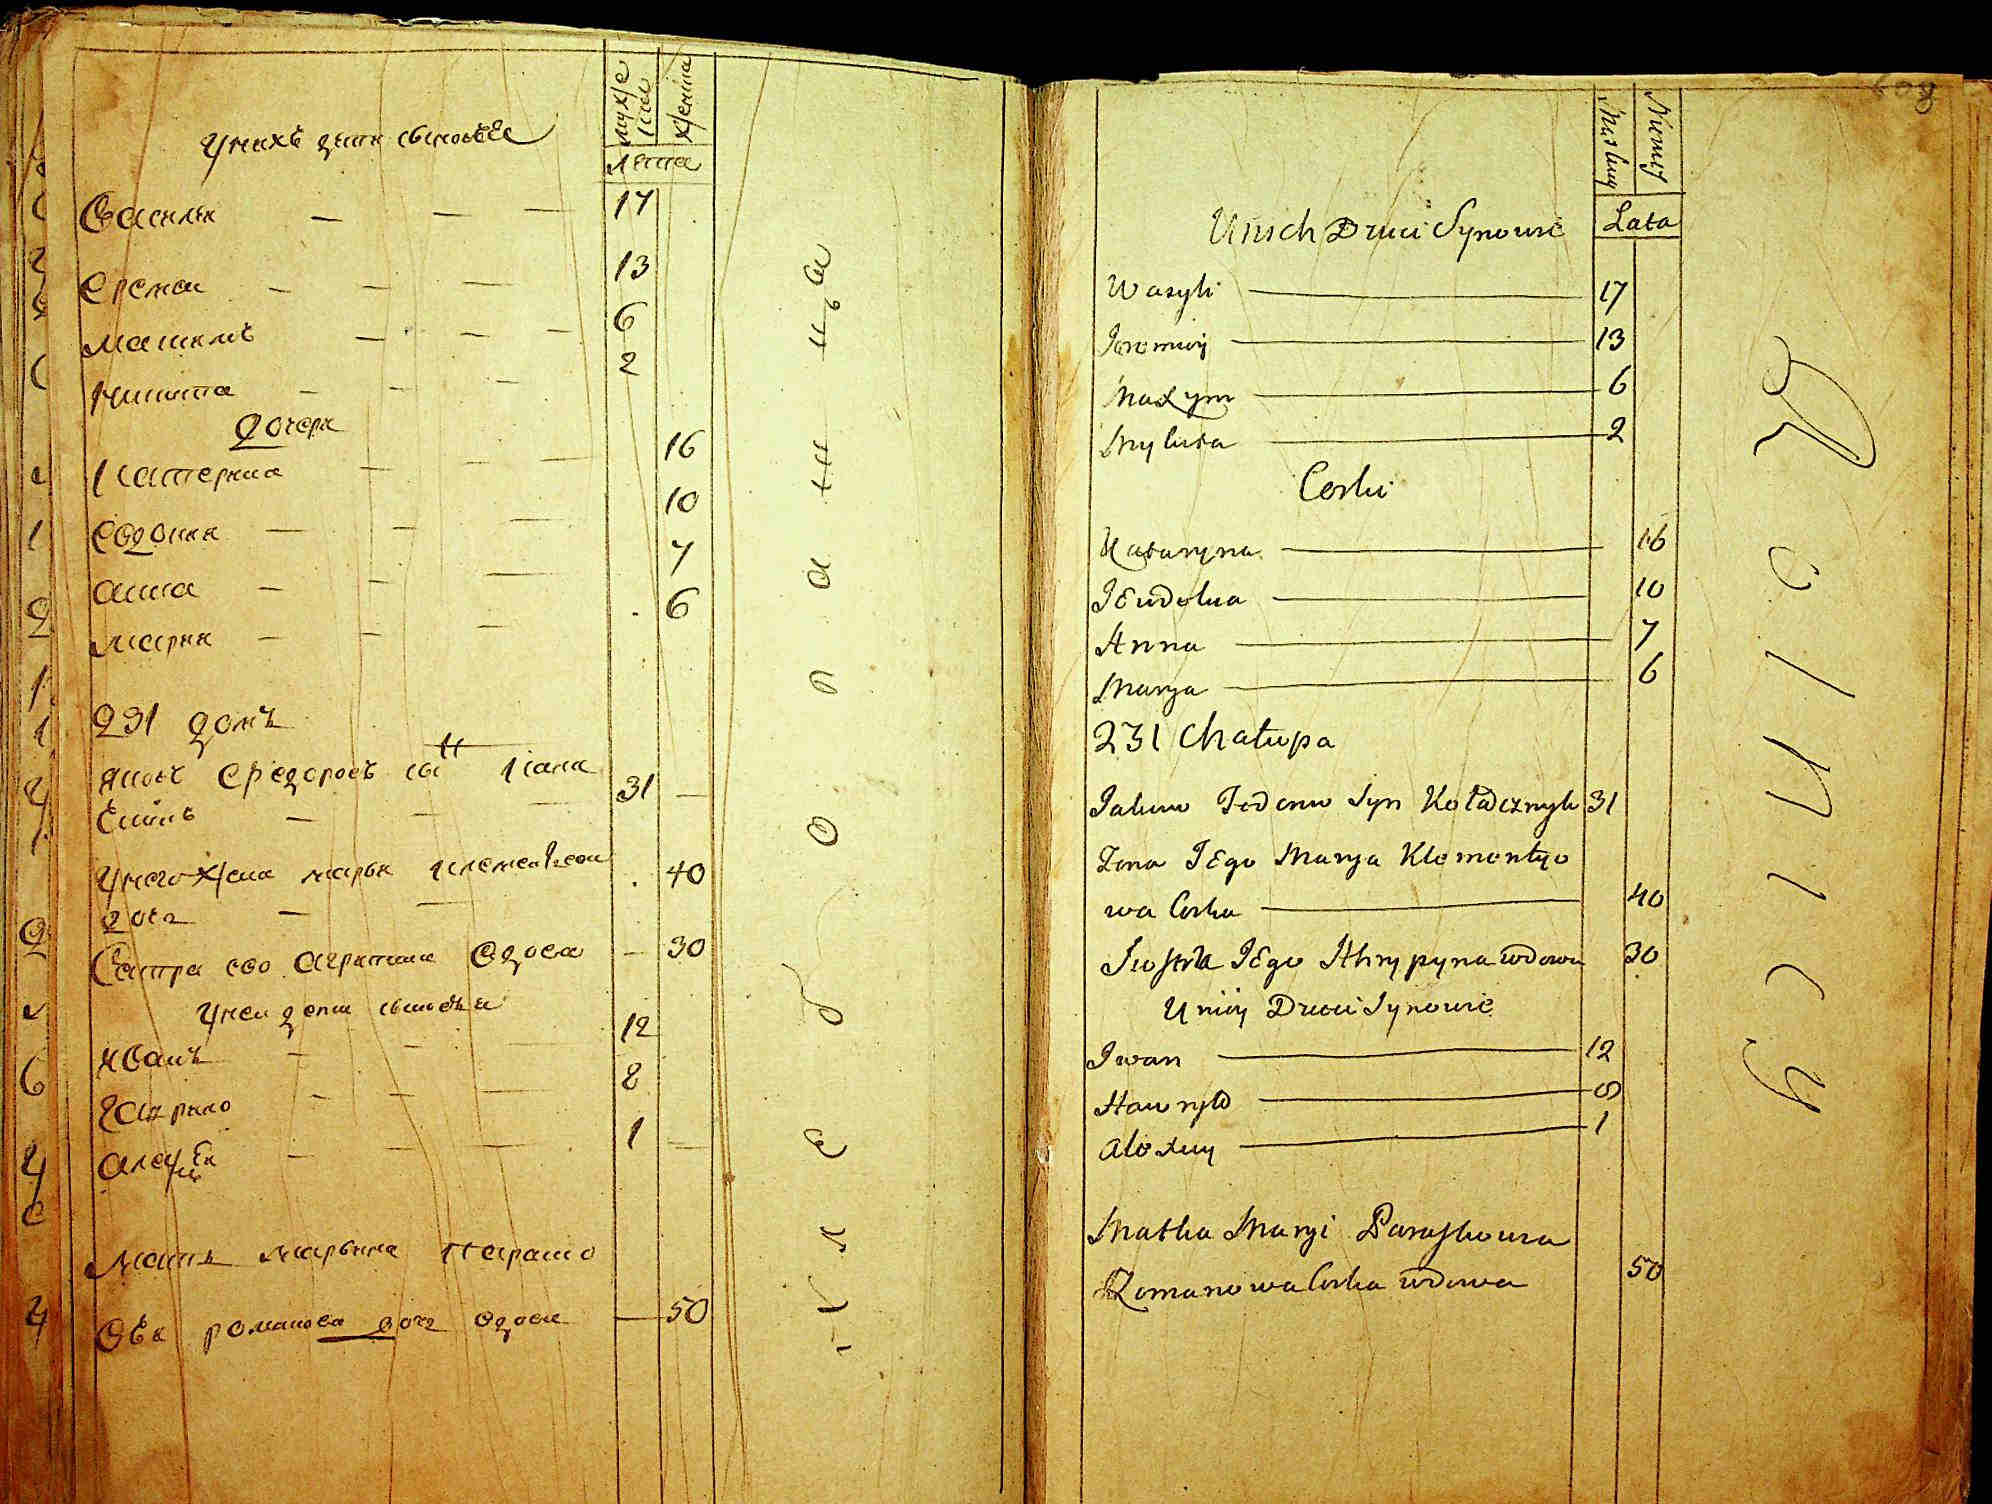 мужеска
женска
лета
у нихъ дети сыновья
Василь 17
Ерема 13
Максимъ 6
Никита 2
дочери
Катерина 16
Евдокия 10
Анна 7
Мария 6
231 домъ
Яковъ Федоровъ сынъ 31
У него жена Марья 40
дочь
Сестра его Агрипина вдова 30
У неи дети сыновья
Иванъ 12
Гаврило 8
Алексей 1
Мать Марьина Параско
вья Романова дочь вдова 50
608
Lata
U Nich Dzieci Synowie
Wasyli 17
Jeremiej 13
Maxym 6
Mykita 2
Corki
Kataryna 16
JEwdokia 10
Anna 7
Marya 6
231 Chałupa
Jakow Fedorow Syn Koładcznyk 31
Zona JEgo Marya Klementyo
wa Corka 40
Siostra JEgo Ahrypyna wdowa 30
U niey Dzieci Synowie
Iwan 12
Hawryło 8
Alexiey 1
Matka Maryi Paraskowia
Romanowa Corka wdowa 50
Rolnicy